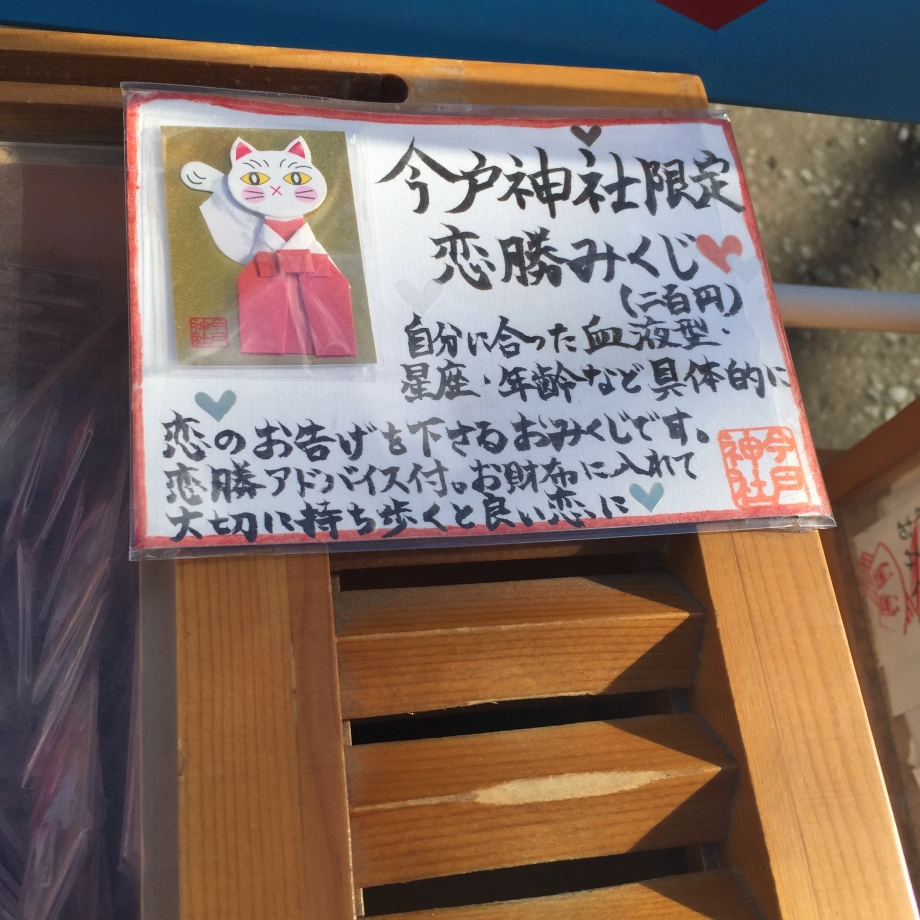 今戸神社限定
恋勝みくじ
(二百円)
自分に合った血液型・
星座・年齢など具体的に
恋のお告げを下さるおみくじです。
恋勝アドバイス付。お財布に入れて
大切に持ち歩くと良い恋に
今戸
神社